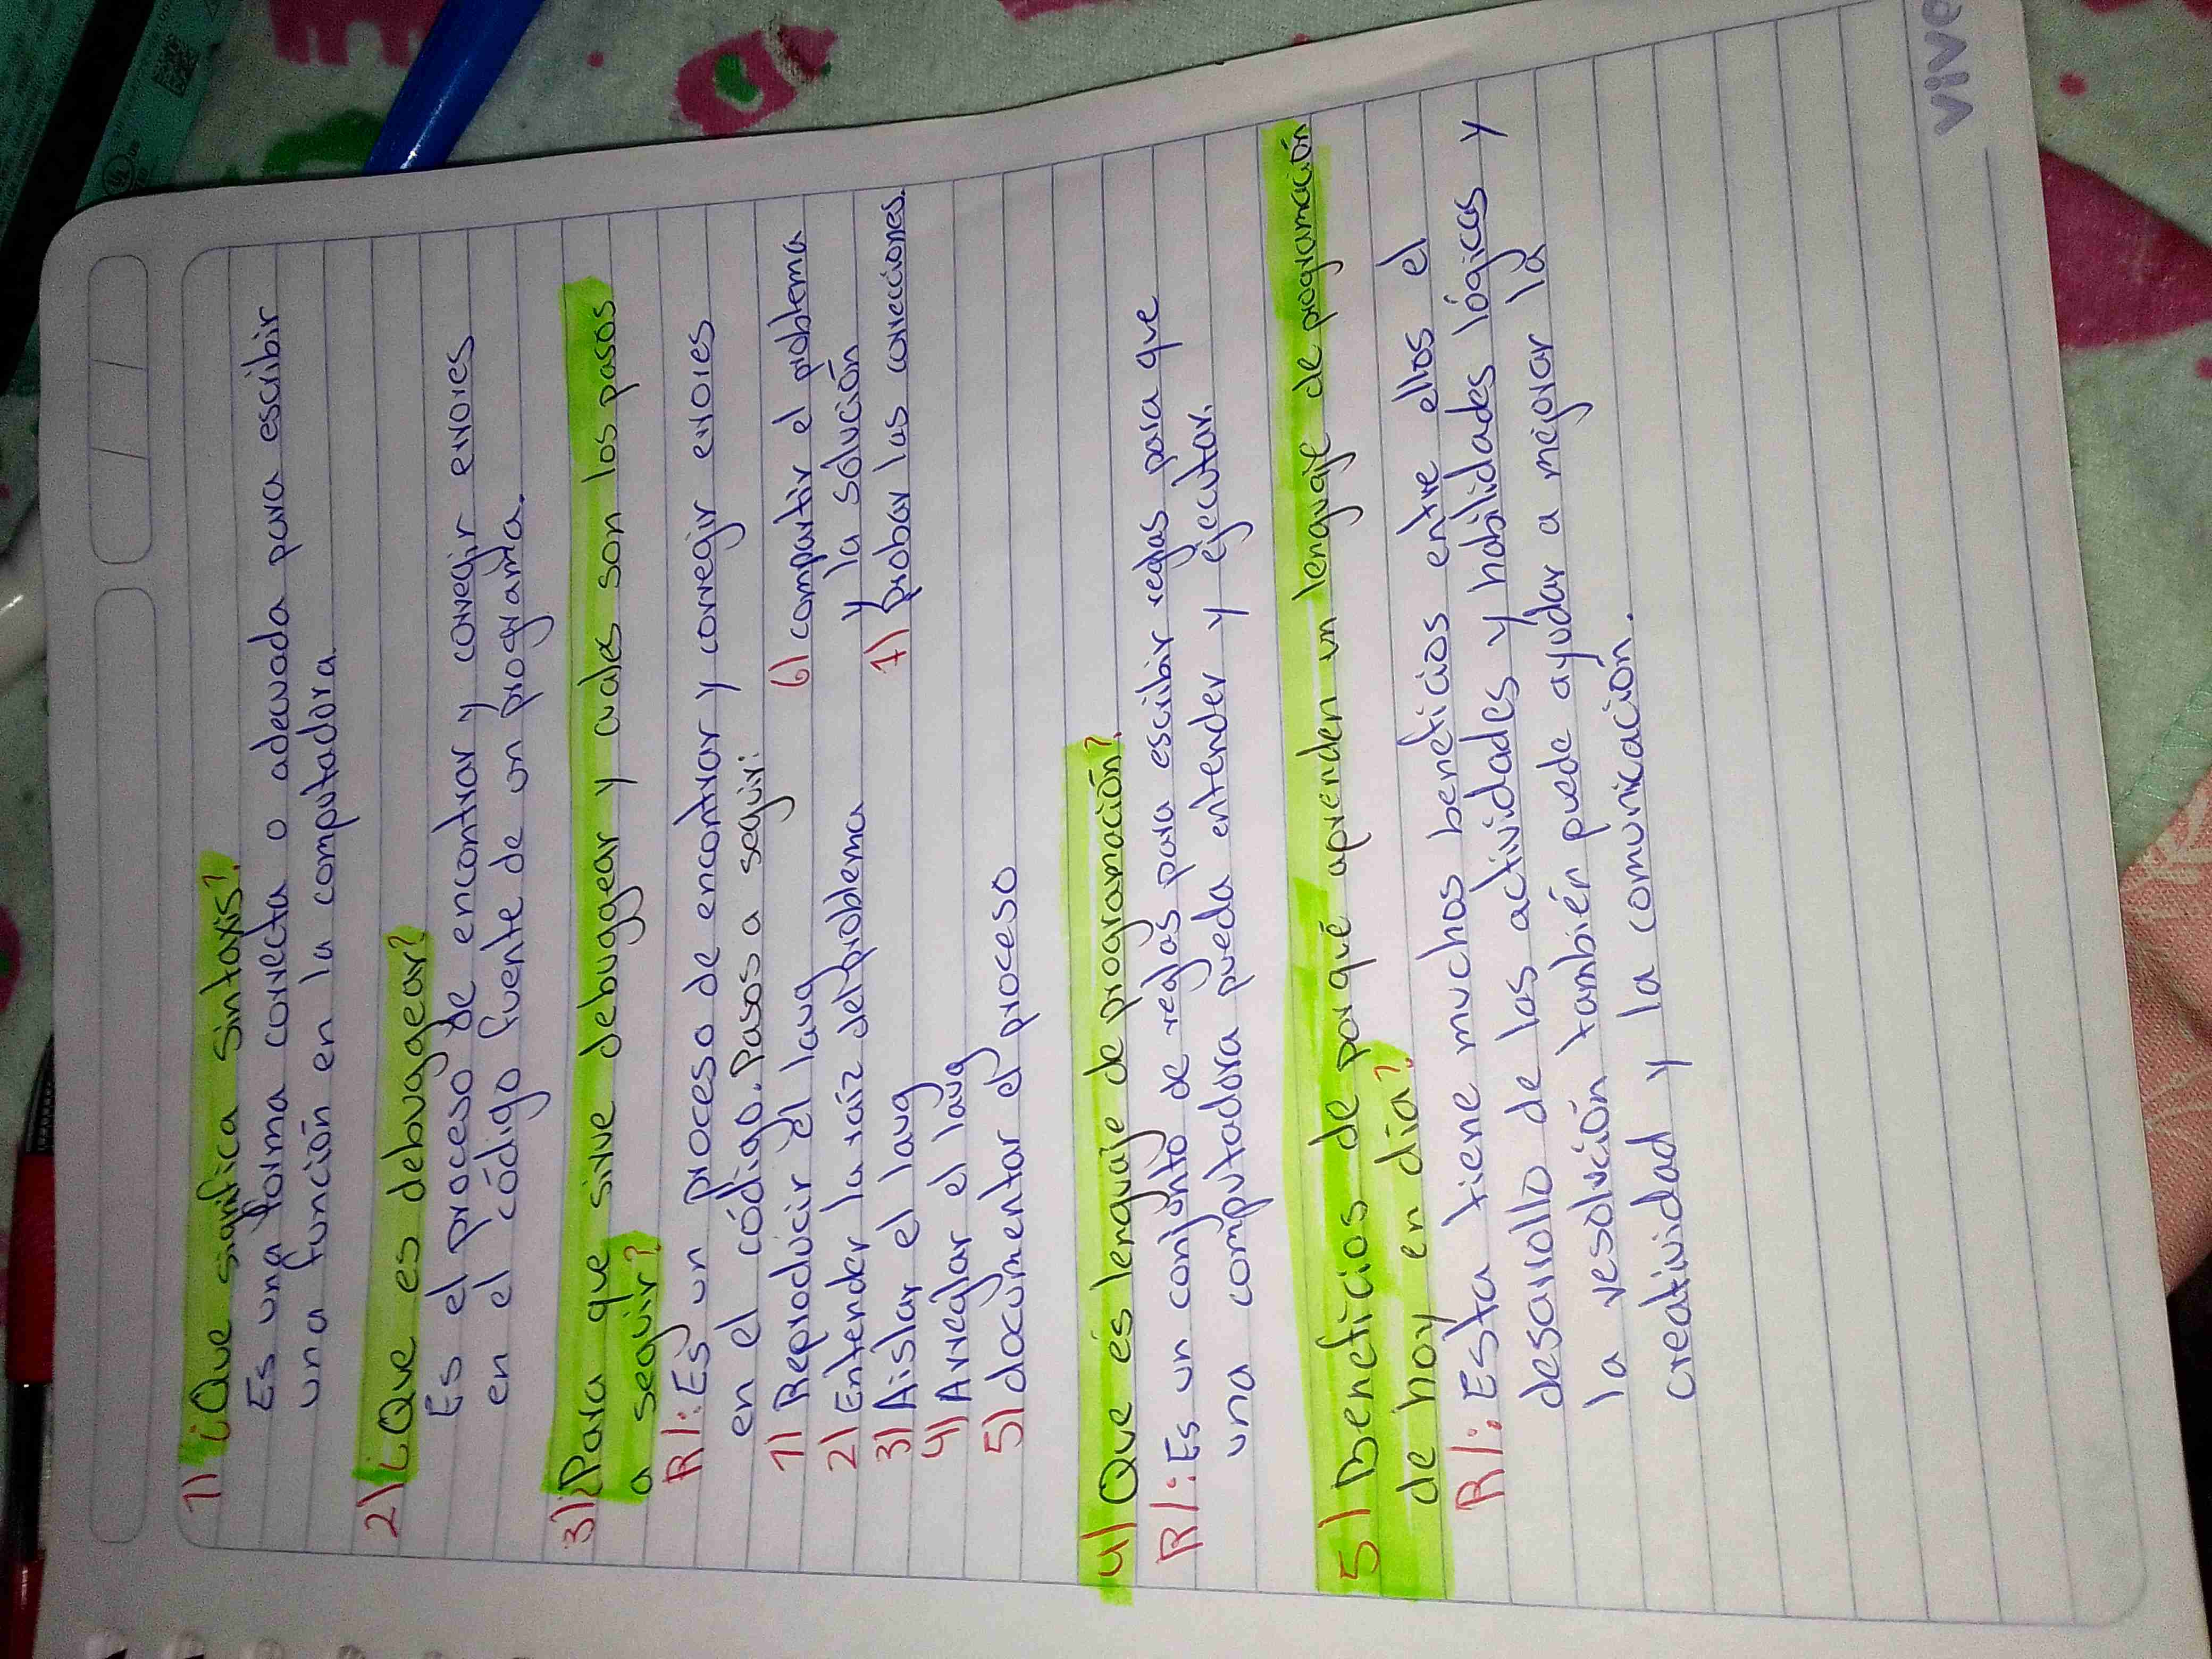 1) ¿Que significa sintaxis?
Es una forma correcta o adecuada para escribir
una función en la computadora.
2) ¿Que es debuggear?
Es el proceso de encontrar y corregir errores
en el código fuente de un programa.
3) ¿Para que sirve debuggear y cuales son los pasos
a seguir?
R/: Es un proceso de encontrar y corregir errores
en el código. Pasos a seguir:
1) Reproducir el laug
2) Entender la raíz del problema
3) Aislar el laug
4) Arreglar el laug
5) documentar el proceso
6) compartir el problema
y la solución
7) probar las correcciones.
4) Que es lenguaje de programación?
R/: Es un conjunto de reglas para escibir reglas para que
una computadora pueda entender y ejecutar.
5) Beneficios de porqué aprenden un lenguaje de programación
de hoy en día?
R/: Esta tiene muchos beneficios entre ellos el
desarrollo de las actividades y habilidades lógicas y
la resolución también puede ayudar a mejorar la
creatividad y la comunicación.
vive